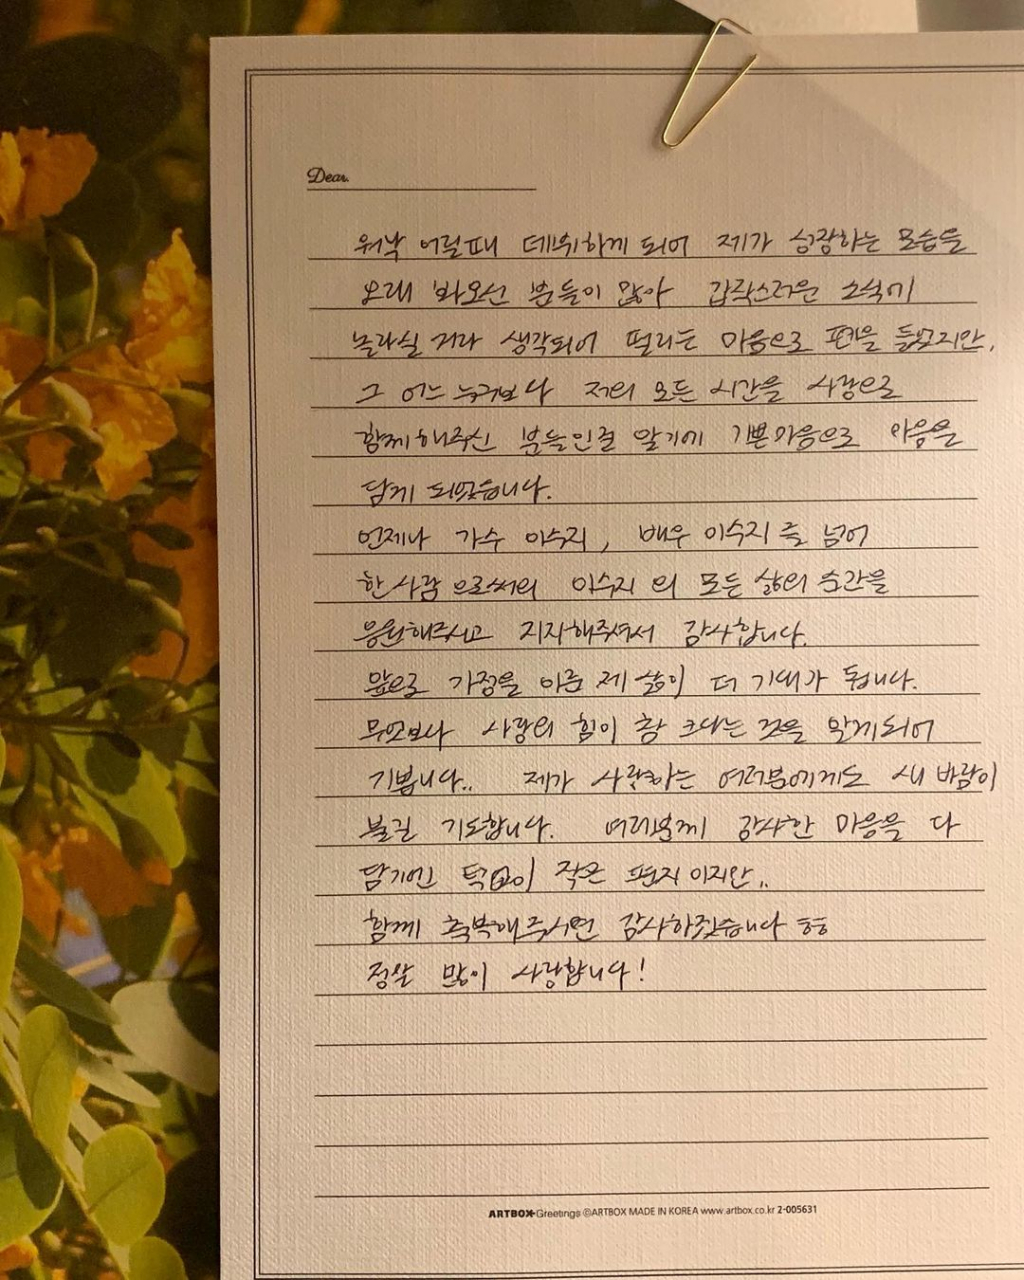 Dear.
워낙 어릴때 데뷔하게 되어 제가 성장하는 모습을
오래 봐오신 분들이 많아 갑작스러운 소식에
놀라실 거라 생각되어 떨리는 마음으로 펜을 들었지만,
그 어느 누구보다 저의 모든 시간을 사랑으로
함께해주신 분들인걸 알기에 기쁜마음으로 마음을
담게 되었습니다.
언제나 가수 이수지, 배우 이수지 를 넘어
한 사람 으로써의 이수지 의 모든 삶의 순간을
응원해주시고 지지해주셔서 감사합니다.
앞으로 가정을 이룬 제 삶이 더 기대가 됩니다.
무엇보다 사랑의 힘이 참 크다는 것을 알게되어
기쁩니다.. 제가 사랑하는 여러분에게도 새 바람이
불길 기도합니다. 여러분께 감사한 마음을 다
담기엔 턱없이 작은 편지 이지만..
함께 축복해주시면 감사하겠습니다 ㅎㅎ
정말 많이 사랑합니다!
ARTBOX Greetings ©ARTBOX MADE IN KOREA www.artbox.co.kr 2-005631